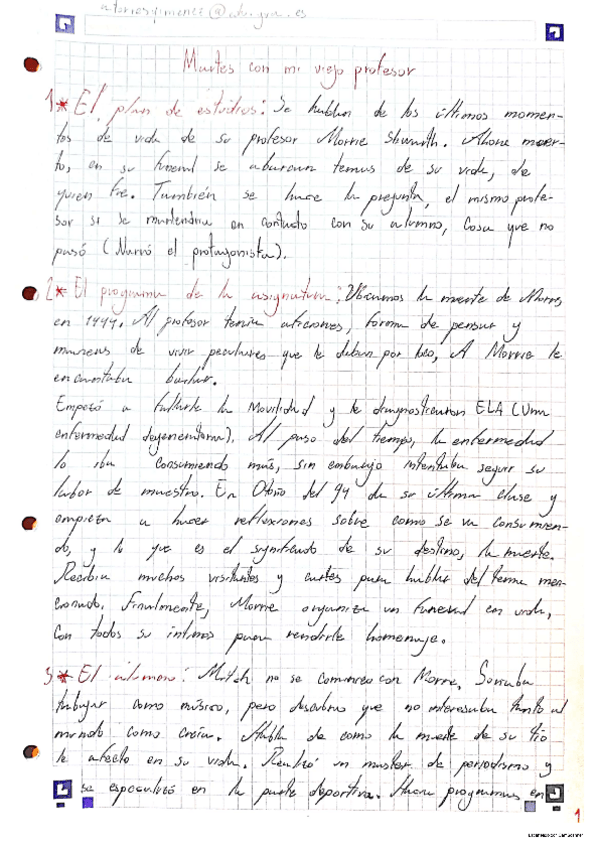 Martes con mi viejo profesor
1* El plan de estudios: Se hablan de los últimos momen-
tos de vida de su profesor Morrie. Ahora muer-
to, en su funeral se abarcan temas de su vida, de
quien fue. También se hace la pregunta, el mismo profe-
sor si se mantendría en contacto con su alumno, cosa que no
pasó (Narró el protagonista).
2* El programa de la asignatura: Ubicamos la muerte de Morrie
en 1994. Al profesor tenía aficiones, forma de pensar y
maneras de vivir peculiares que le daban por loco, A Morrie le
encantaba bailar.
Empezó a fallarle la Movilidad y le diagnosticaron ELA (Una
enfermedad degenerativa). Al paso del tiempo, la enfermedad
lo iba consumiendo más, sin embargo intentaba seguir su
labor de maestro. En Otoño del 94 da su última clase y
empieza a hacer reflexiones sobre como se va consumien-
do, y lo que es el significado de su destino, la muerte.
Recibía muchos visitantes y cartas para hablar del tema men-
cionado. Finalmente, Morrie organiza un funeral en vida,
Con todos su íntimos para rendirle homenaje.
3* El alumno: Mitch no se comunica con Morrie. Soñaba
trabajar como músico, pero descubrió que no interesaba tanto al
mundo como creía. Habla de como la muerte de su tío
le afectó en su vida. Realizó un master de periodismo y
se especializó en la parte deportiva. Hacía programas en
1